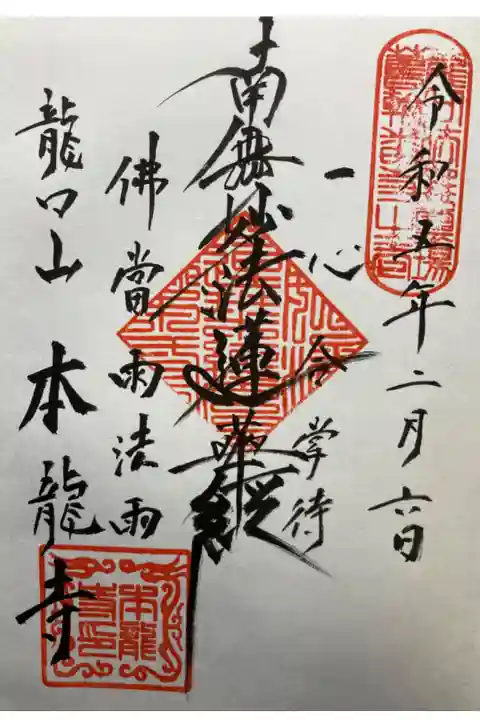 令和五年二月六日
一心合掌待
南無妙法蓮華経
佛當雨法雨
龍口山 本龍寺
本龍寺印